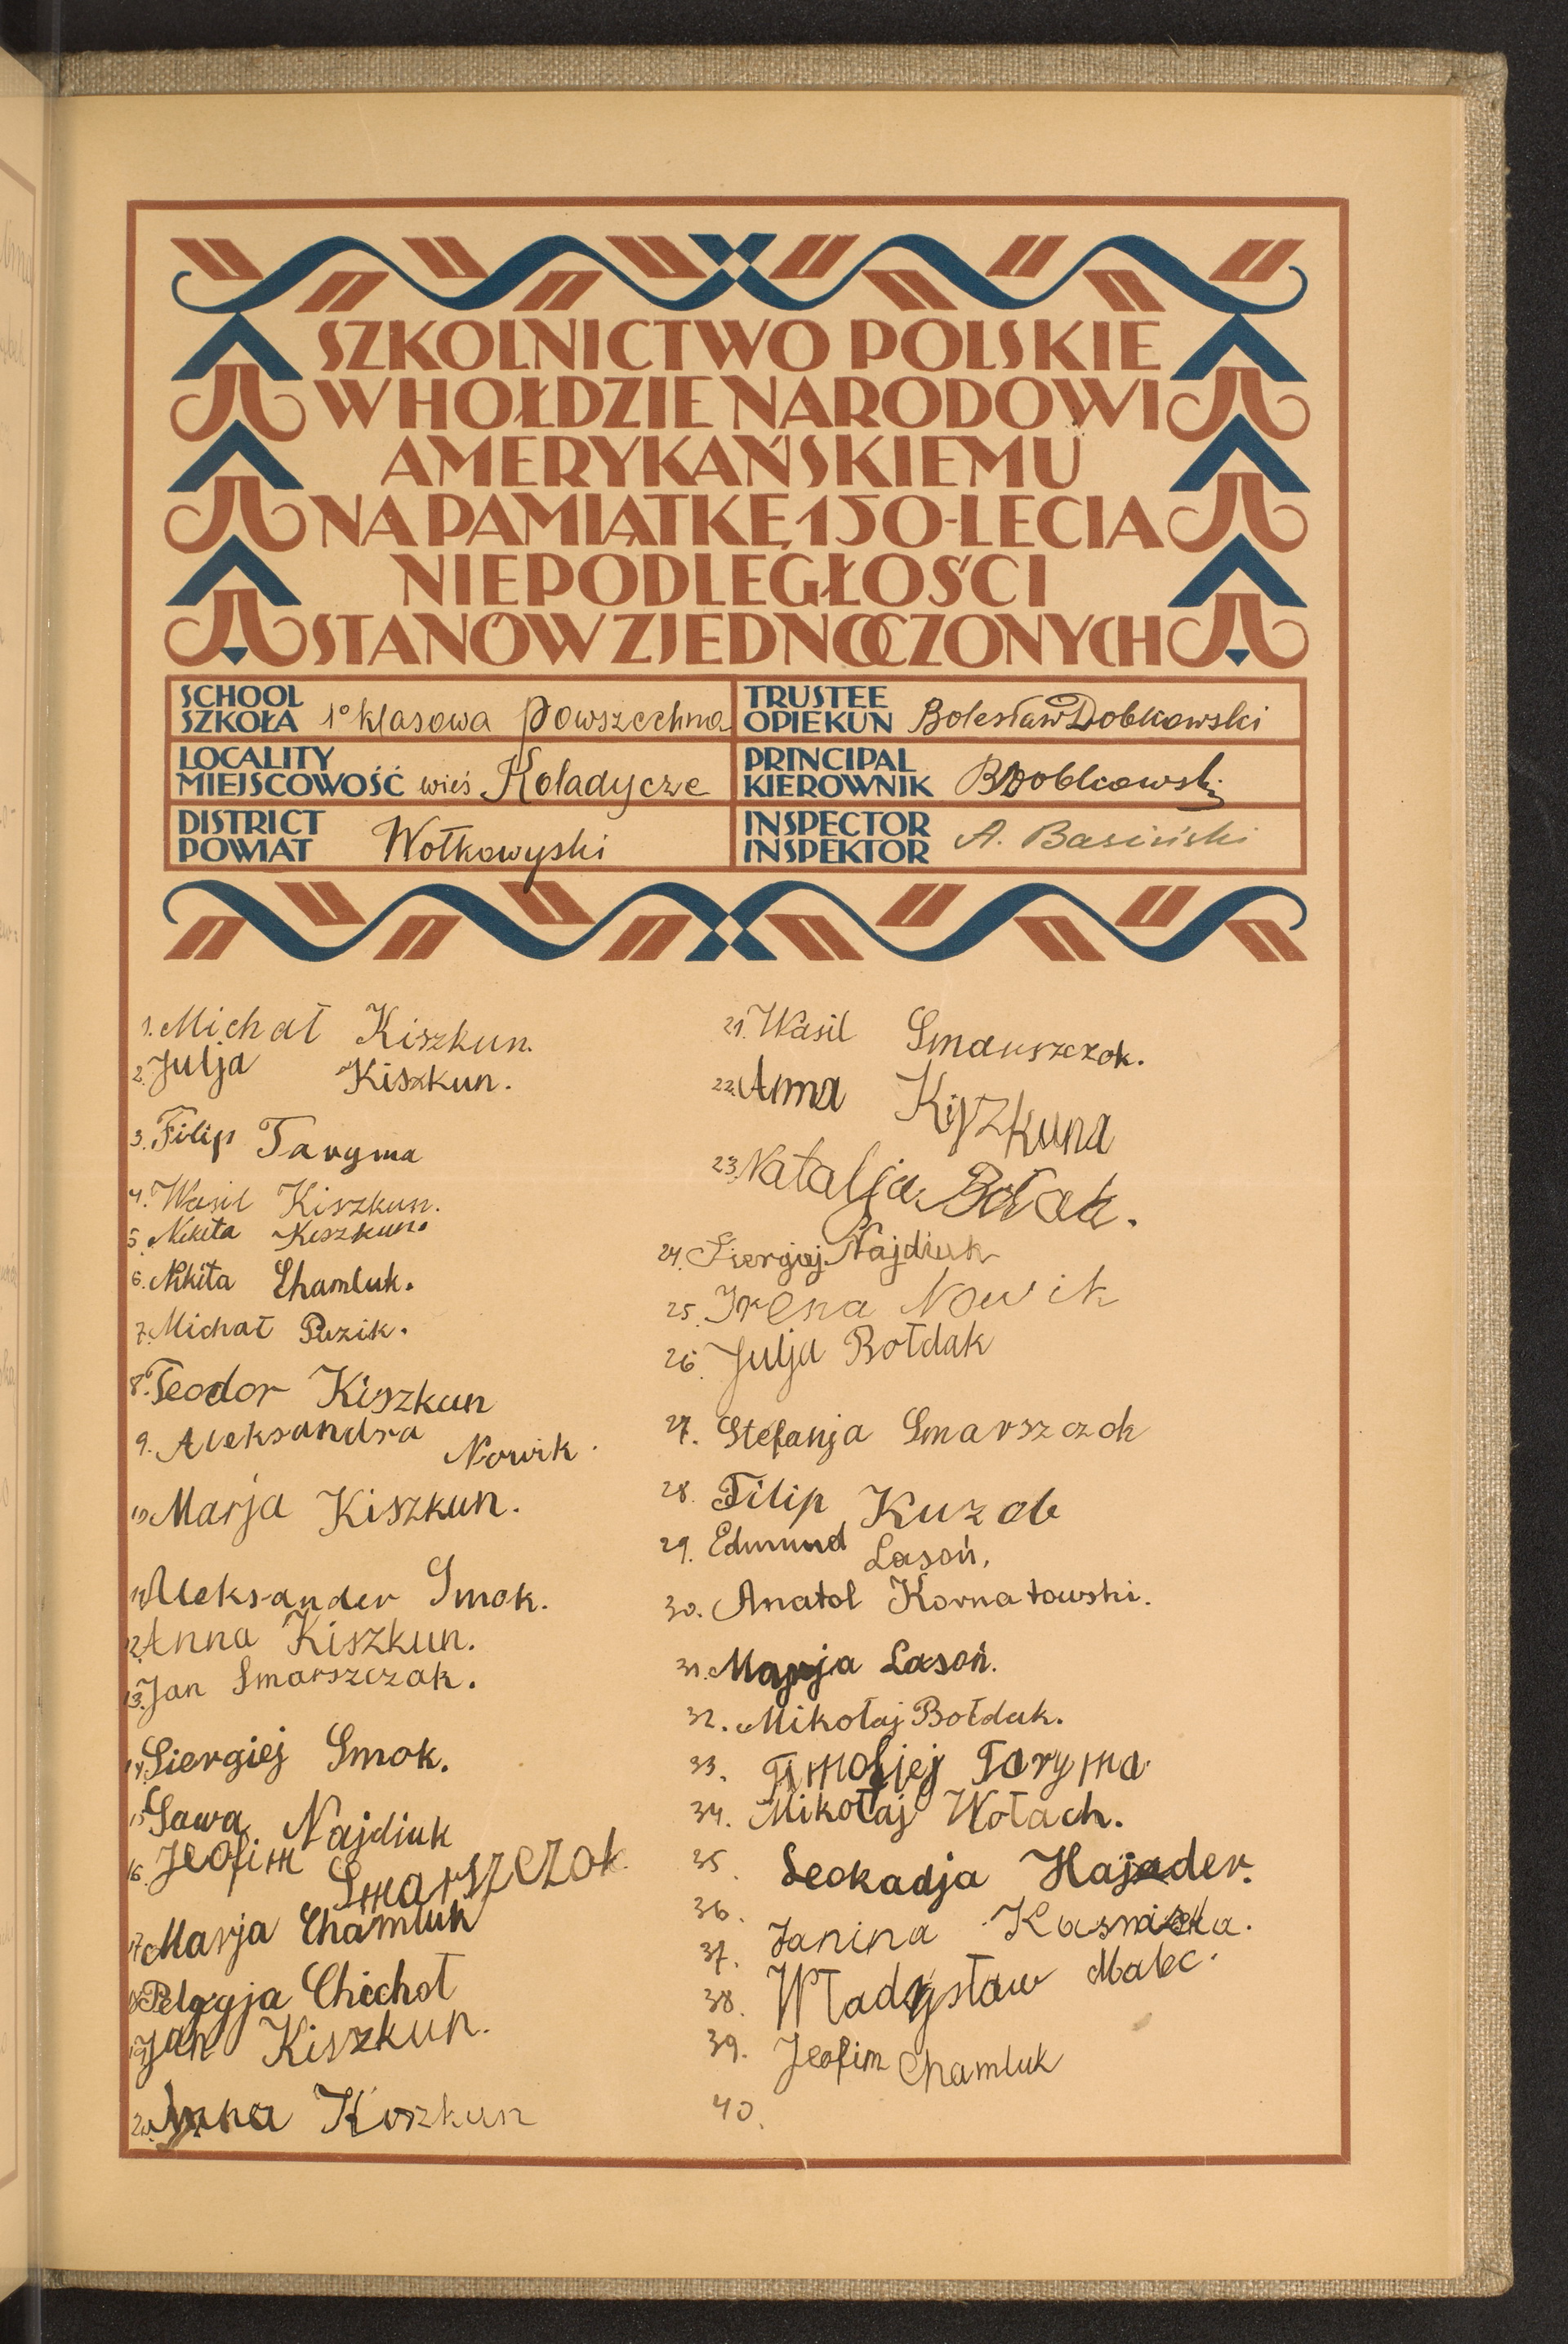 SZKOLNICTWO POLSKIE
W HOŁDZIE NARODOWI
AMERYKAŃSKIEMU
NA PAMIĄTKĘ 150-LECIA
NIEPODLEGŁOŚCI
STANÓW ZJEDNOCZONYCH
SCHOOL
SZKOŁA 1º klasowa Powszechna
TRUSTEE
OPIEKUN Bolesław Dobkowski
LOCALITY
MIEJSCOWOŚĆ wieś Koladycze
PRINCIPAL
KIEROWNIK BDobkowski
DISTRICT
POWIAT Wołkowyski
INSPECTOR
INSPEKTOR A. Basiński
1. Michał Kiszkun.
2. Julja Kiszkun.
3. Filip Taryma
4. Wasil Kiszkun.
5. Nikita Kiszkun.
6. Nikita Chamluk.
7. Michał Puzik.
8. Teodor Kiszkun
9. Aleksandra Nowik.
10. Marja Kiszkun.
11. Aleksander Smok.
12. Anna Kiszkun.
13. Jan Smarszczak.
14. Siergiej Smok.
15. Sawa Najdiuk
16. Jeofim Smarszczok
17. Marja Chamluk
18. Pelagja Chichoł
19. Jan Kiszkun.
20. Anna Kiszkun
21. Wasil Smarszczok.
22. Anna Kiszkuna
23. Natalja
24. Siergiej Najdiuk
25. Irena Nowik
26. Julja Bołdak
27. Stefanja Smarszczok
28. Filip Kuzab
29. Edmund Lasoń.
30. Anatol Kornatowski.
31. Marja Lasoń.
32. Mikołaj Bołdak.
33. Timofjej Taryma
34. Mikołaj Wołach.
35. Leokadja Hajader.
36. Janina
37.
38. Władysław Malec.
39. Jeofim Chamluk
40.